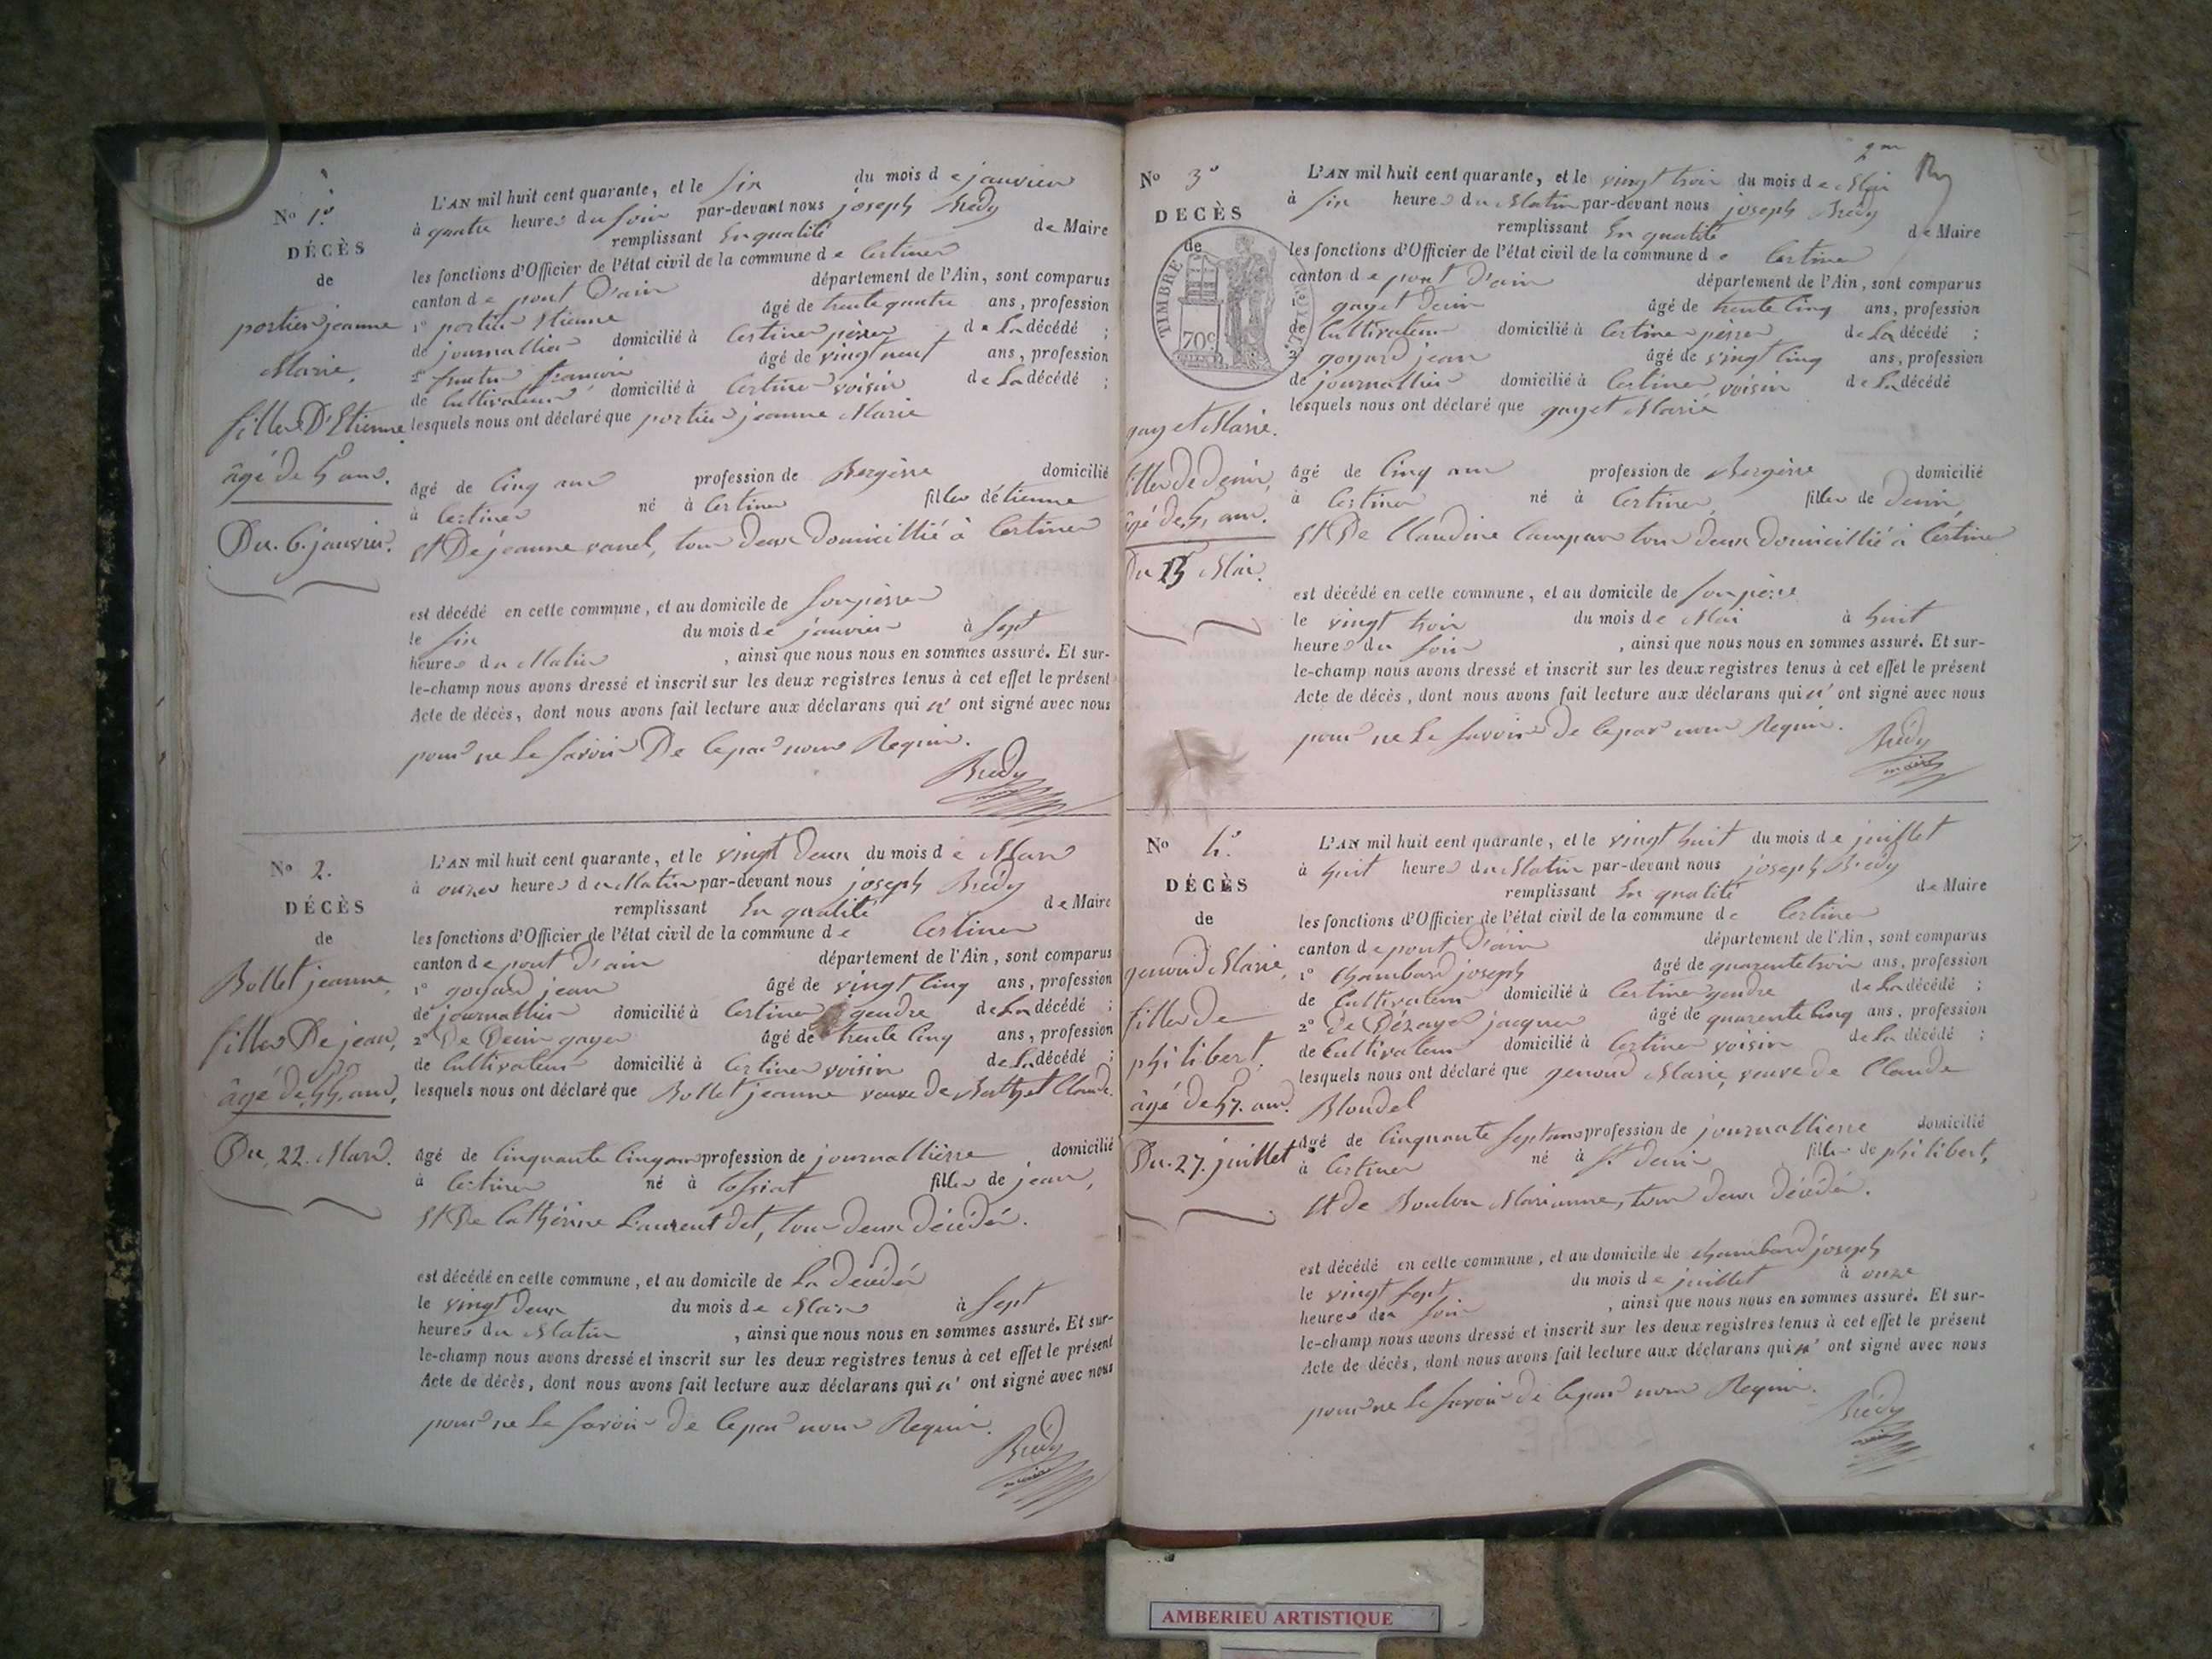 No 1.
DÉCÈS
de
portier jeanne
Marie,
fille D'Etienne
âgé de 5 ans.
Du. 6. janvier.
L'AN mil huit cent quarante, et le six du mois de janvier
à quatre heures du soir par-devant nous joseph Brédy
remplissant En qualité de Maire
les fonctions d'Officier de l'état civil de la commune de Certines
canton de pont D'ain département de l'Ain, sont comparus
1º portier Etienne âgé de trente quatre ans, profession
de journallier domicilié à Certines père de La décédé ;
2º françois âgé de vingt neuf ans, profession
de Cultivateur domicilié à Certines voisin de La décédé ;
lesquels nous ont déclaré que portier jeanne Marie
âgé de Cinq ans profession de Bergère domicilié
à Certines né à Certines fille détienne
Et De jeanne vanel, tous deux Domicillié à Certines
est décédé en cette commune, et au domicile de son père
le six du mois de janvier à sept
heures du Matin , ainsi que nous nous en sommes assuré. Et sur-
le-champ nous avons dressé et inscrit sur les deux registres tenus à cet effet le présent
Acte de décès, dont nous avons fait lecture aux déclarans qui n' ont signé avec nous
pour ne Le savoir De Ce par nous Requis.
Brédy
maire
No 2.
DÉCÈS
de
Bollet jeanne,
fille De jean,
âgé de 55 ans,
Du, 22. Mars.
L'AN mil huit cent quarante, et le vingt Deux du mois de Mars
à onze heures du Matin par-devant nous joseph Brédy
remplissant En qualité de Maire
les fonctions d'Officier de l'état civil de la commune de Certines
canton de pont D'ain département de l'Ain, sont comparus
1º goyard jean âgé de vingt Cinq ans, profession
de journallier domicilié à Certines gendre de La décédé ;
2º De Denis gayet âgé de trente Cinq ans, profession
de Cultivateur domicilié à Certines voisin de La décédé ;
lesquels nous ont déclaré que Bollet jeanne veuve de Berthet Claude.
âgé de Cinquante Cinq ans profession de journallière domicilié
à Certines né à tossiat fille de jean,
Et De Cathérine Laurent det, tous deux décédés.
est décédé en cette commune, et au domicile de La Décédée
le vingt Deux du mois de Mars à sept
heures du Matin , ainsi que nous nous en sommes assuré. Et sur-
le-champ nous avons dressé et inscrit sur les deux registres tenus à cet effet le présent
Acte de décès, dont nous avons fait lecture aux déclarans qui n' ont signé avec nous
pour ne Le savoir de Ce par nous Requis.
Brédy
maire
No 3
DECÈS
de
TIMBRE
70c
gayet Marie.
fille de denis,
âgé de 5, ans.
Du 23 Mai.
L'AN mil huit cent quarante, et le vingt trois du mois de Mai
à six heures du Matin par-devant nous joseph Brédy
remplissant En qualité de Maire
les fonctions d'Officier de l'état civil de la commune de Certines
canton de pont D'ain département de l'Ain, sont comparus
1º gayet denis âgé de trente Cinq ans, profession
de Cultivateur domicilié à Certines père de La décédé ;
2º goyard jean âgé de vingt Cinq ans, profession
de journallier domicilié à Certines voisin de La décédé
lesquels nous ont déclaré que gayet Marie
âgé de Cinq ans profession de Bergère domicilié
à Certines né à Certines, fille de Denis,
Et De Claudine Campan tous deux domicillié à Certines
est décédé en cette commune, et au domicile de son père
le vingt trois du mois de Mai à huit
heures du soir , ainsi que nous nous en sommes assuré. Et sur-
le-champ nous avons dressé et inscrit sur les deux registres tenus à cet effet le présent
Acte de décès, dont nous avons fait lecture aux déclarans qui n' ont signé avec nous
pour ne Le savoir de Ce par nous Requis.
Brédy
maire
No 4.
DÉCÈS
de
genoud Marie,
fille de
philibert.
âgé de 57. ans.
Du. 27. juillet
L'AN mil huit cent quarante, et le vingt huit du mois de juillet
à huit heures du Matin par-devant nous joseph Brédy
remplissant En qualité de Maire
les fonctions d'Officier de l'état civil de la commune de Certines
canton de pont D'ain département de l'Ain, sont comparus
1º Chambard joseph âgé de quarente trois ans, profession
de Cultivateur domicilié à Certines gendre de La décédé ;
2º de Dézayes jacques âgé de quarente Cinq ans, profession
de Cultivateur domicilié à Certines voisin de La décédé ;
lesquels nous ont déclaré que genoud Marie, veuve de Claude
Blondel
âgé de Cinquante sept ans profession de journallière domicilié
à Certines né à St denis fille de philibert,
Et de Boulon Marianne, tous deux Décédés.
est décédé en cette commune, et au domicile de Chambard joseph
le vingt sept du mois de juillet à onze
heures du soir , ainsi que nous nous en sommes assuré. Et sur-
le-champ nous avons dressé et inscrit sur les deux registres tenus à cet effet le présent
Acte de décès, dont nous avons fait lecture aux déclarans qui n' ont signé avec nous
pour ne Le savoir de Ce par nous Requis.
Brédy
maire
AMBERIEU ARTISTIQUE